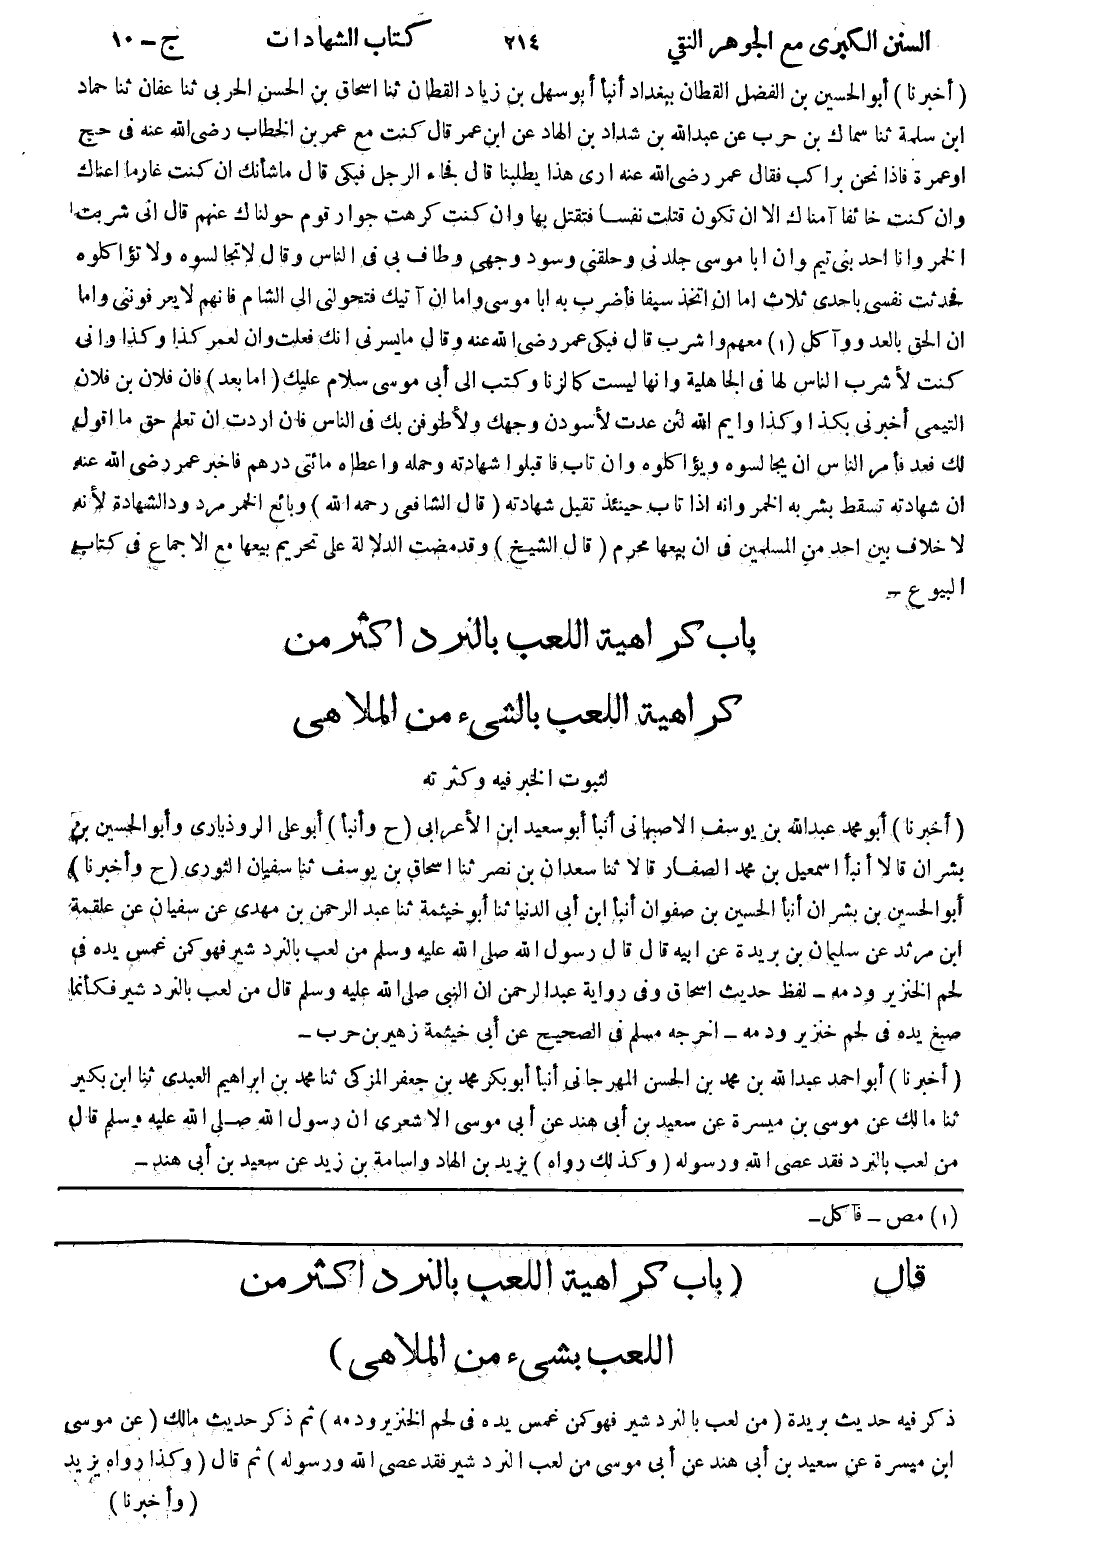 السنن الكبرى مع الجوهر النقي ٢١٤ كتاب الشهادات ج - ١٠
( أخبرنا ) أبو الحسين بن الفضل القطان ببغداد أنبأ أبو سهل بن زياد القطان ثنا اسحاق بن الحسن الحربى ثنا عفان ثنا حماد
ابن سلمة ثنا سماك بن حرب عن عبدالله بن شداد بن الهاد عن ابن عمر قال كنت مع عمر بن الخطاب رضى الله عنه فى حج
او عمرة فاذا نحن براكب فقال عمر رضى الله عنه ارى هذا يطلبنا قال فجاء الرجل فبكى قال ماشأنك ان كنت غارما اعناك
وان كنت خائفا آمناك الا ان تكون قتلت نفسا فتقتل بها وان كنت كرهت جوار قوم حولناك عنهم قال انى شربت
الخمر وانا احد بنى تيم وان ابا موسى جلدنى وحلقنى وسود وجهى وطاف بى فى الناس وقال لاتجالسوه ولا تؤاكلوه
فحدثت نفسى باحدى ثلاث اما ان اتخذ سيفا فأضرب به ابا موسى واما ان آتيك فتحولنى الى الشام فانهم لايعرفوننى واما
ان الحق بالعدو وآكل (١) معهم واشرب قال فبكى عمر رضى الله عنه وقال مايسرنى انك فعلت وان لعمر كذا وكذا وانى
كنت لأشرب الناس لها فى الجاهلية وانها ليست كالزنا وكتب الى أبى موسى سلام عليك ( اما بعد ) فان فلان بن فلان
التيمى أخبرنى بكذا وكذا وايم الله لئن عدت لأسودن وجهك ولأطوفن بك فى الناس فان اردت ان تعلم حق ما اقول
لك فعد فأمر الناس ان يجالسوه ويؤاكلوه وان تاب فاقبلوا شهادته وحمله واعطاه مائتى درهم فاخبر عمر رضى الله عنه
ان شهادته تسقط بشربه الخمر وانه اذا تاب حينئذ تقبل شهادته ( قال الشافعى رحمه الله ) وبائع الخمر مردود الشهادة لأنه
لا خلاف بين احد من المسلمين فى ان بيعها محرم ( قال الشيخ ) وقد مضت الدلالة على تحريم بيعها مع الاجماع فى كتاب
البيوع -
باب كراهية اللعب بالنرد اكثر من
كراهية اللعب بالشىء من الملاهى
لثبوت الخبر فيه وكثرته
( أخبرنا ) أبو محمد عبدالله بن يوسف الاصبهانى أنبأ أبو سعيد ابن الأعرابى ( ح وأنبأ ) أبو على الروذبارى وأبو الحسين بن
بشران قالا أنبأ اسمعيل بن محمد الصفار قالا ثنا سعدان بن نصر ثنا اسحاق بن يوسف ثنا سفيان الثورى ( ح وأخبرنا )
أبو الحسين بن بشران أنبأ الحسين بن صفوان أنبأ ابن أبى الدنيا ثنا أبو خيثمة ثنا عبد الرحمن بن مهدى عن سفيان عن علقمة
ابن مرثد عن سليمان بن بريدة عن ابيه قال قال رسول الله صلى الله عليه وسلم من لعب بالنرد شير فهو كمن غمس يده فى
لحم الخنزير ودمه - لفظ حديث اسحاق وفى رواية عبدالرحمن ان النبى صلى الله عليه وسلم قال من لعب بالنرد شير فكأنما
صبغ يده فى لحم خنزير ودمه - اخرجه مسلم فى الصحيح عن أبى خيثمة زهير بن حرب -
( أخبرنا ) أبو احمد عبدالله بن محمد بن الحسن المهرجانى أنبأ أبو بكر محمد بن جعفر المزكى ثنا محمد بن ابراهيم العبدى ثنا ابن بكير
ثنا مالك عن موسى بن ميسرة عن سعيد بن أبى هند عن أبى موسى الاشعرى ان رسول الله صلى الله عليه وسلم قال
من لعب بالنرد فقد عصى الله ورسوله ( وكذلك رواه ) يزيد بن الهاد واسامة بن زيد عن سعيد بن أبى هند -
(١) مص - فآكل-
قال ( باب كراهية اللعب بالنرد اكثر من
اللعب بشىء من الملاهى )
ذكر فيه حديث بريدة ( من لعب بالنرد شير فهو كمن غمس يده فى لحم الخنزير ودمه ) ثم ذكر حديث مالك ( عن موسى
ابن ميسرة عن سعيد بن أبى هند عن أبى موسى من لعب النرد شير فقد عصى الله ورسوله ) ثم قال ( وكذا رواه يزيد
( وأخبرنا )